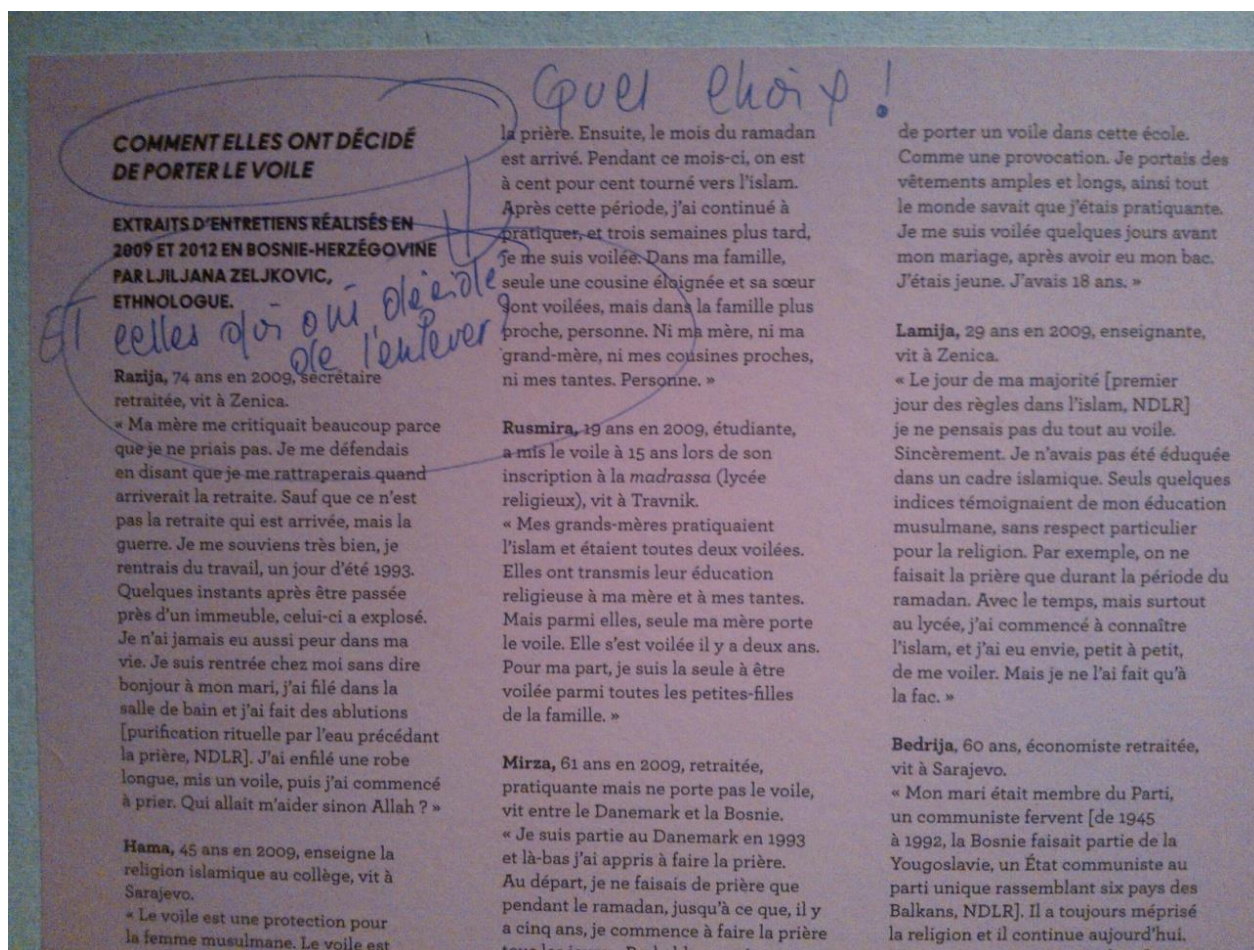 Quel choix !
COMMENT ELLES ONT DÉCIDÉ
DE PORTER LE VOILE
EXTRAITS D'ENTRETIENS RÉALISÉS EN
2009 ET 2012 EN BOSNIE-HERZÉGOVINE
PAR LJILJANA ZELJKOVIC,
ETHNOLOGUE.
ET celles qui ont décidé
de l'enlever ?
Razija, 74 ans en 2009, secrétaire
retraitée, vit à Zenica.
« Ma mère me critiquait beaucoup parce
que je ne priais pas. Je me défendais
en disant que je me rattraperais quand
arriverait la retraite. Sauf que ce n'est
pas la retraite qui est arrivée, mais la
guerre. Je me souviens très bien, je
rentrais du travail, un jour d'été 1993.
Quelques instants après être passée
près d'un immeuble, celui-ci a explosé.
Je n'ai jamais eu aussi peur dans ma
vie. Je suis rentrée chez moi sans dire
bonjour à mon mari, j'ai filé dans la
salle de bain et j'ai fait des ablutions
[purification rituelle par l'eau précédant
la prière, NDLR]. J'ai enfilé une robe
longue, mis un voile, puis j'ai commencé
à prier. Qui allait m'aider sinon Allah ? »
Hama, 45 ans en 2009, enseigne la
religion islamique au collège, vit à
Sarajevo.
« Le voile est une protection pour
la femme musulmane. Le voile est
la prière. Ensuite, le mois du ramadan
est arrivé. Pendant ce mois-ci, on est
à cent pour cent tourné vers l'islam.
Après cette période, j'ai continué à
pratiquer, et trois semaines plus tard,
je me suis voilée. Dans ma famille,
seule une cousine éloignée et sa sœur
sont voilées, mais dans la famille plus
proche, personne. Ni ma mère, ni ma
grand-mère, ni mes cousines proches,
ni mes tantes. Personne. »
Rusmira, 19 ans en 2009, étudiante,
a mis le voile à 15 ans lors de son
inscription à la madrassa (lycée
religieux), vit à Travnik.
« Mes grands-mères pratiquaient
l'islam et étaient toutes deux voilées.
Elles ont transmis leur éducation
religieuse à ma mère et à mes tantes.
Mais parmi elles, seule ma mère porte
le voile. Elle s'est voilée il y a deux ans.
Pour ma part, je suis la seule à être
voilée parmi toutes les petites-filles
de la famille. »
Mirza, 61 ans en 2009, retraitée,
pratiquante mais ne porte pas le voile,
vit entre le Danemark et la Bosnie.
« Je suis partie au Danemark en 1993
et là-bas j'ai appris à faire la prière.
Au départ, je ne faisais de prière que
pendant le ramadan, jusqu'à ce que, il y
a cinq ans, je commence à faire la prière
de porter un voile dans cette école.
Comme une provocation. Je portais des
vêtements amples et longs, ainsi tout
le monde savait que j'étais pratiquante.
Je me suis voilée quelques jours avant
mon mariage, après avoir eu mon bac.
J'étais jeune. J'avais 18 ans. »
Lamija, 29 ans en 2009, enseignante,
vit à Zenica.
« Le jour de ma majorité [premier
jour des règles dans l'islam, NDLR]
je ne pensais pas du tout au voile.
Sincèrement. Je n'avais pas été éduquée
dans un cadre islamique. Seuls quelques
indices témoignaient de mon éducation
musulmane, sans respect particulier
pour la religion. Par exemple, on ne
faisait la prière que durant la période du
ramadan. Avec le temps, mais surtout
au lycée, j'ai commencé à connaître
l'islam, et j'ai eu envie, petit à petit,
de me voiler. Mais je ne l'ai fait qu'à
la fac. »
Bedrija, 60 ans, économiste retraitée,
vit à Sarajevo.
« Mon mari était membre du Parti,
un communiste fervent [de 1945
à 1992, la Bosnie faisait partie de la
Yougoslavie, un État communiste au
parti unique rassemblant six pays des
Balkans, NDLR]. Il a toujours méprisé
la religion et il continue aujourd'hui.